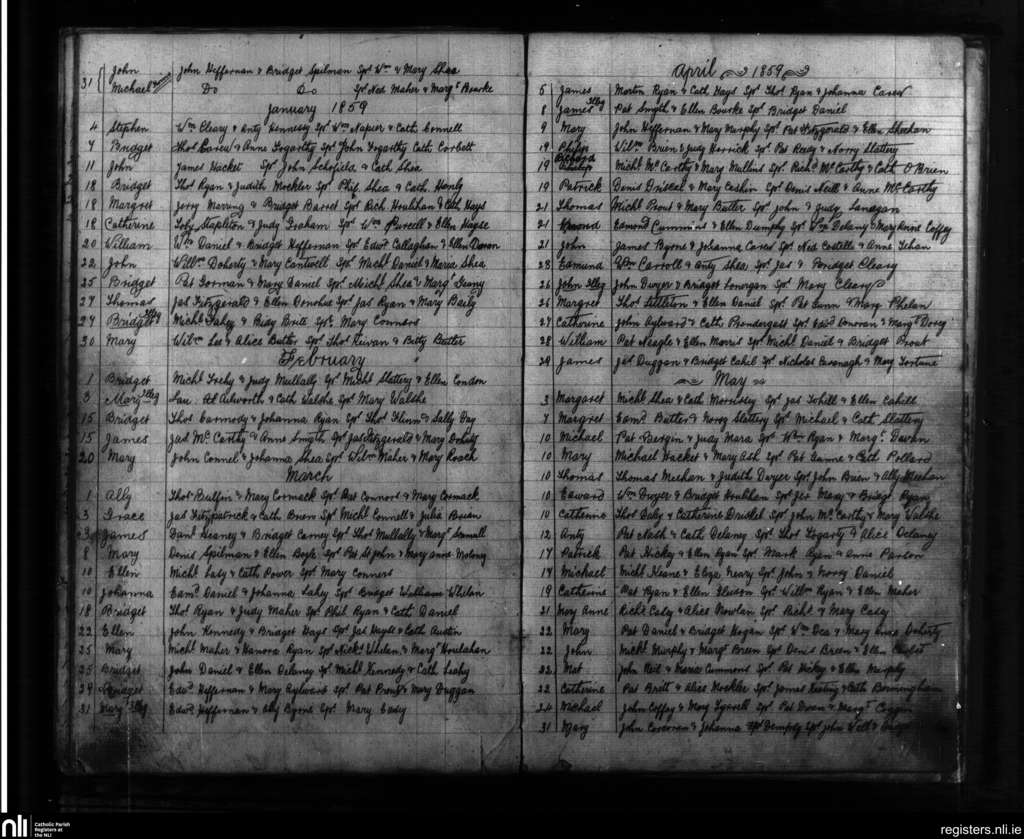 31 John John Heffernan & Bridget Spilman Spr Wm & Mary Shea
Michael Do Do Spr Ned Maher & Margt Bourke
January 1859
4 Stephen Wm Cleary & Anty Hennessy Spr Wm Napier & Cath Connell
7 Bridget Thos Carew & Anne Fogarthy Spr John Fogarthy Cath Corbett
11 John James Hacket Spr John Schofield & Cath Shea
18 Bridget Thos Ryan & Judith Mockler Spr Phil Shea & Cath
18 Margret Jerry & Bridget Barret Spr Rich Houlihan & Cath Hays
18 Catherine Toby Stapleton & Judy Graham Spr Wm Purcell & Ellen Hayse
20 William Wm Daniel & Bridget Heffernan Spr Edwd Callaghan & Ellen
22 John Willm Doherty & Mary Cantwell Spr Michl Daniel & Maria Shea
25 Bridget Pat Gorman & Mary Daniel Spr Michl Shea & Margt
27 Thomas Jas Fitzgerald & Ellen Donohue Spr Jas Ryan & Mary Baily
27 Bridget Illeg Michl Fahey & Biddy Spr Mary Connors
30 Mary Willm Lee & Alice Butler Spr Thos & Betty Butler
February
1 Bridget Michl & Judy Mullally Spr Michl Slattery & Ellen Condon
3 Mary Illeg & Cath Walshe Spr Mary Walshe
15 Bridget Thos Carmody & Johanna Ryan Spr Thos Flinn & Sally Day
15 James Jas Mc Carthy & Anne Smyth Spr Jas Fitzgerald & Mary Doherty
20 Mary John Connel & Johanna Shea Spr Willm Maher & Mary Roach
March
1 Ally Thos Bulfin & Mary Cormack Spr Pat Connors & Mary Cormack
3 Grace Jas Fitzpatrick & Cath Brien Spr Michl Connell & Julia Brian
3 James Danl & Bridget Carney Spr Thos Mullally & Margt
8 Mary Denis Spilman & Ellen Boyle Spr Pat St John & Mary Anne Molony
10 Ellen Michl & Cath Power Spr Mary Conners
10 Johanna Eamd Daniel & Johanna Lahey Spr Bridget William Whelan
18 Bridget Thos Ryan & Judy Maher Spr Phil Ryan & Cath Daniel
22 Ellen John Kennedy & Bridget Hays Spr Jas Hayse & Cath Austin
25 Mary Michl Maher & Hanora Ryan Spr Nicks Whelan & Margt Hourahan
25 Bridget John Daniel & Ellen Delaney Spr Michl Kennedy & Cath Leahy
29 Bridget Edwd Heffernan & Mary Aylward Spr Pat & Mary Duggan
31 Mary Illeg Edwd Heffernan & Ally Byrne Spr Mary
April 1859
5 James Morton Ryan & Cath Hays Spr Thos Ryan & Johanna Carew
8 James Illeg Pat Smyth & Ellen Bourke Spr Bridget Daniel
9 Mary John Heffernan & Mary Murphy Spr Pat Fitzgerald & Ellen Sheehan
19 Philip Willm Brien & Judy Herrick Spr Pat & Norry Slattery
19 Richard Michl Mc Carthy & Mary Mullins Spr Richd Mc Carthy & Cath O'Brien
19 Patrick Denis Driskel & Mary Cashin Spr Denis Neill & Anne Mc Carthy
21 Thomas Michl Prout & Mary Butler Spr John & Judy Lanagan
21 Edmond Cummins & Ellen Dumphy Spr Wm Delany & Mary Anne Coffey
21 John James Byrne & Johanna Carew Spr Ned Costello & Anne Tehan
23 Edmund Wm Carroll & Anty Shea Spr Jas & Bridget Cleary
26 John Illeg John Dwyer & Bridget Lonergan Spr Mary Cleary
26 Margret Thos Littleton & Ellen Daniel Spr Pat Lunn & Mary Phelan
27 Catherine John Aylward & Cath Prendergast Spr Edwd Donovan & Margt
28 William Pat Neagle & Ellen Morris Spr Michl Daniel & Bridget Prout
29 James Jas Duggan & Bridget Cahil Spr Nicholas Cavanagh & Mary Fortune
May
3 Margaret Michl Shea & Cath Morrissy Spr Jas Tohill & Ellen Cahill
7 Margret Eamd Butler & Norry Slattery Spr Michael & Cath Slattery
10 Michael Pat & Judy Mara Spr Wm Ryan & Margt
10 Mary Michael Hacket & Mary Ash Spr Pat & Cath Pollard
10 Thomas Thomas Meehan & Judith Dwyer Spr John Brien & Ally Meehan
10 Edward Wm Dwyer & Bridget Houlihan Spr & Bridgt Ryan
10 Catherine Thos Daly & Catherine Driskel Spr John Mc Carthy & Mary Walshe
12 Anty Pat Nash & Cath Delaney Spr Thos Fogarty & Alice Delaney
17 Patrick Pat Hickey & Ellen Ryan Spr Mark Ryan & Anne
17 Michael Michl Keane & Eliza Neary Spr John & Norry Daniel
19 Catherine Pat Ryan & Ellen Spr Willm Ryan & Ellen Meher
21 Mary Anne Richd Casey & Alice Nowlan Spr Richd & Mary Casey
22 Mary Pat Daniel & Bridget Hogan Spr Wm Dea & Mary Anne Doherty
22 John Michl Murphy & Margt Breen Spr Denis Breen & Ellen
22 Mat John Neil & Maria Cummons Spr Pat Hickey & Ellen Murphy
22 Catherine Pat Britt & Alice Mockler Spr James Keating & Cath Bermingham
24 Michael John Coffey & Mary Tyrrell Spr Pat & Margt
31 Mary John Corcoran & Johanna Dempsey Spr John
nli Catholic Parish
Registers at
the NLI
registers.nli.ie